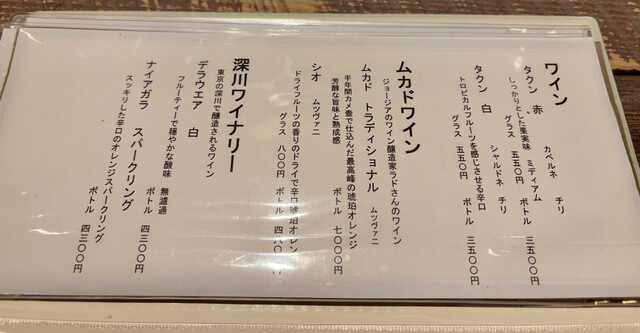 ワイン
タクン 赤 カベルネ チリ
しっかりとした果実味 ミディアム
グラス 五五〇円 ボトル 三五〇〇円
タクン 白 シャルドネ チリ
トロピカルフルーツを感じさせる辛口
グラス 五五〇円 ボトル 三五〇〇円
ムカドワイン
ジョージアのワイン醸造家ラドさんのワイン
ムカド トラディショナル ムツヴァニ
半年間カメ壺で仕込んだ最高峰の琥珀オレンジ
芳醇な旨味と熟成感 ボトル 七〇〇〇円
シオ ムツヴァニ
ドライフルーツの香りのドライで辛口琥珀オレン
グラス 八〇〇円 ボトル 四八〇〇円
深川ワイナリー
東京の深川で醸造されるワイン
デラウエア 白 無濾過
フルーティーで穏やかな酸味 ボトル 四三〇〇円
ナイアガラ スパークリング
スッキリした辛口のオレンジスパークリング
ボトル 四三〇〇円